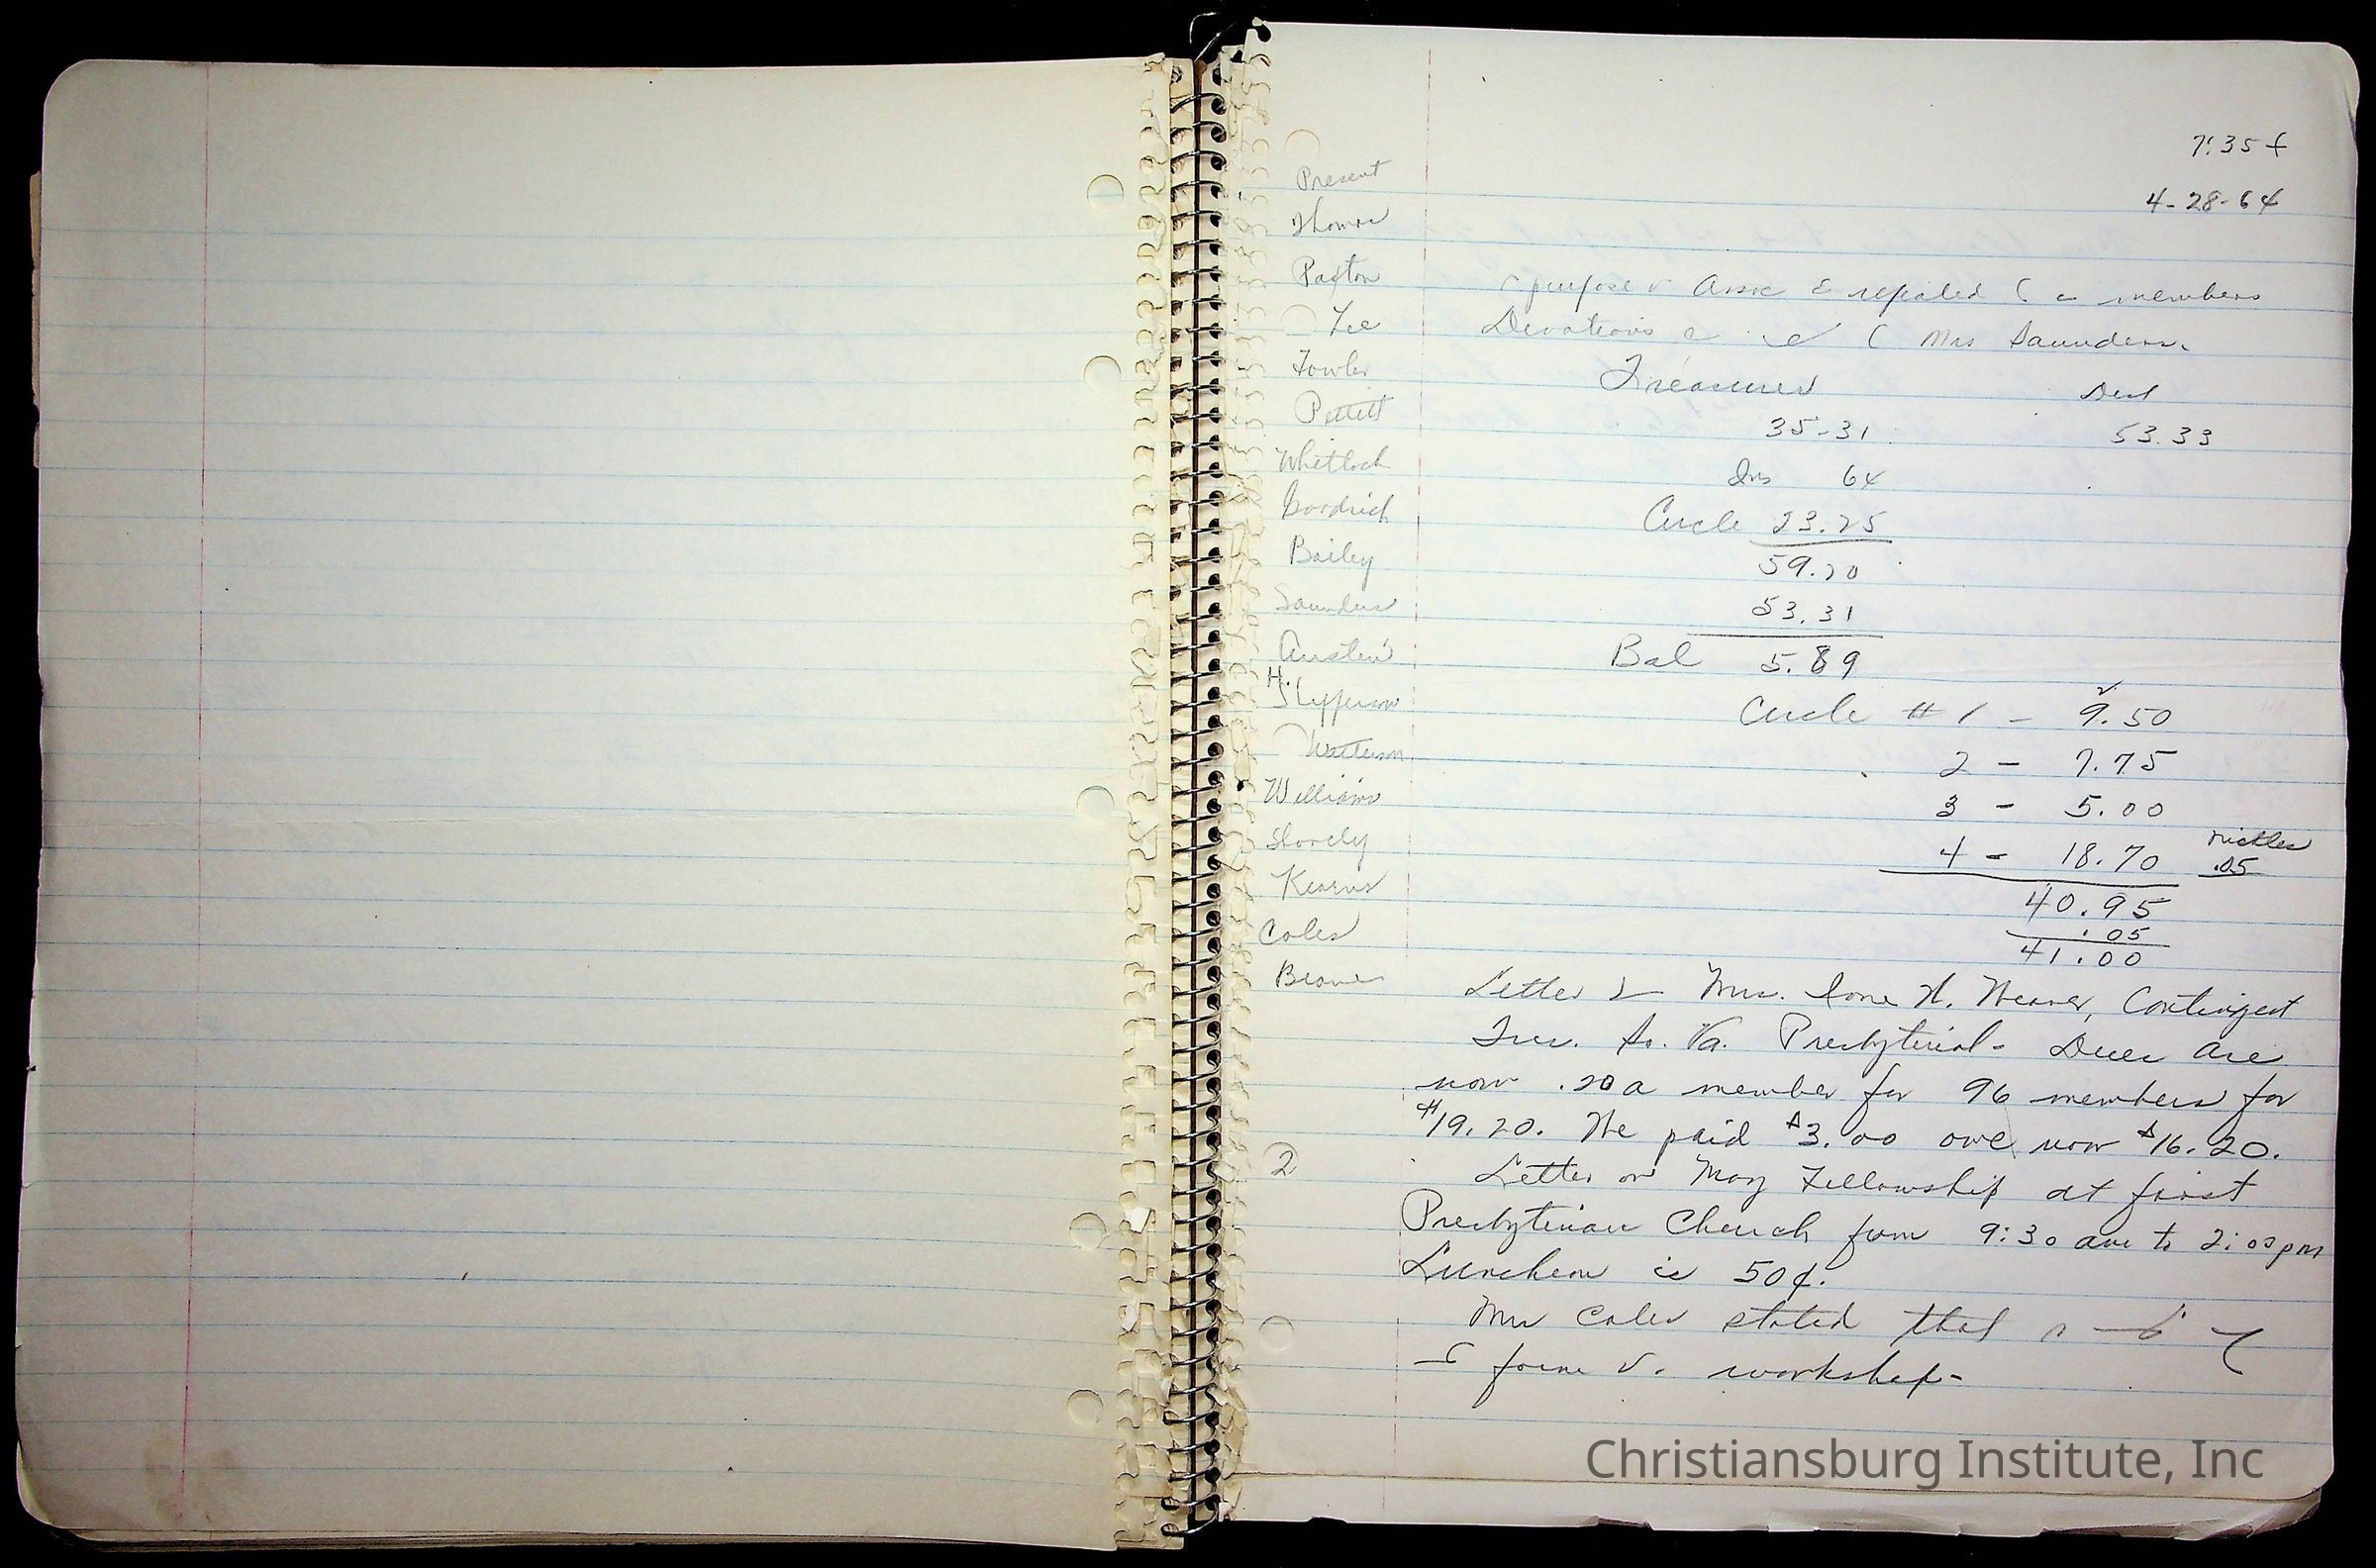 7:35
4-28-64
Present
Thomas
Paxton
Lee
Fowler
Pettett
Whitlock
Goodrich
Bailey
Saunders
Austin
H.
Jefferson
Watterson
Williams
Shovely
Kearns
Coles
purpose Assoc repeated members
Devotions Mrs Saunders.
Treasurer
35-31
53.33
Ins 64
Circle 23.25
59.20
53.31
Bal 5.89
Circle #1 - 9.50
2 - 7.75
3 - 5.00
4 - 18.70
nickles
.05
40.95
.05
41.00
Letter Mrs. Ione W. Weaver, Contingent
Tres. So. Va. Presbyterial - Dues are
now .20 a member for 96 members for
$19.20. We paid $3.00 owe now $16.20.
2
Letter on May Fellowship at first
Presbyterian Church from 9:30 am to 2:00 pm
Luncheon is 50¢.
Mrs Coles stated that
form workshop-
Christiansburg Institute, Inc